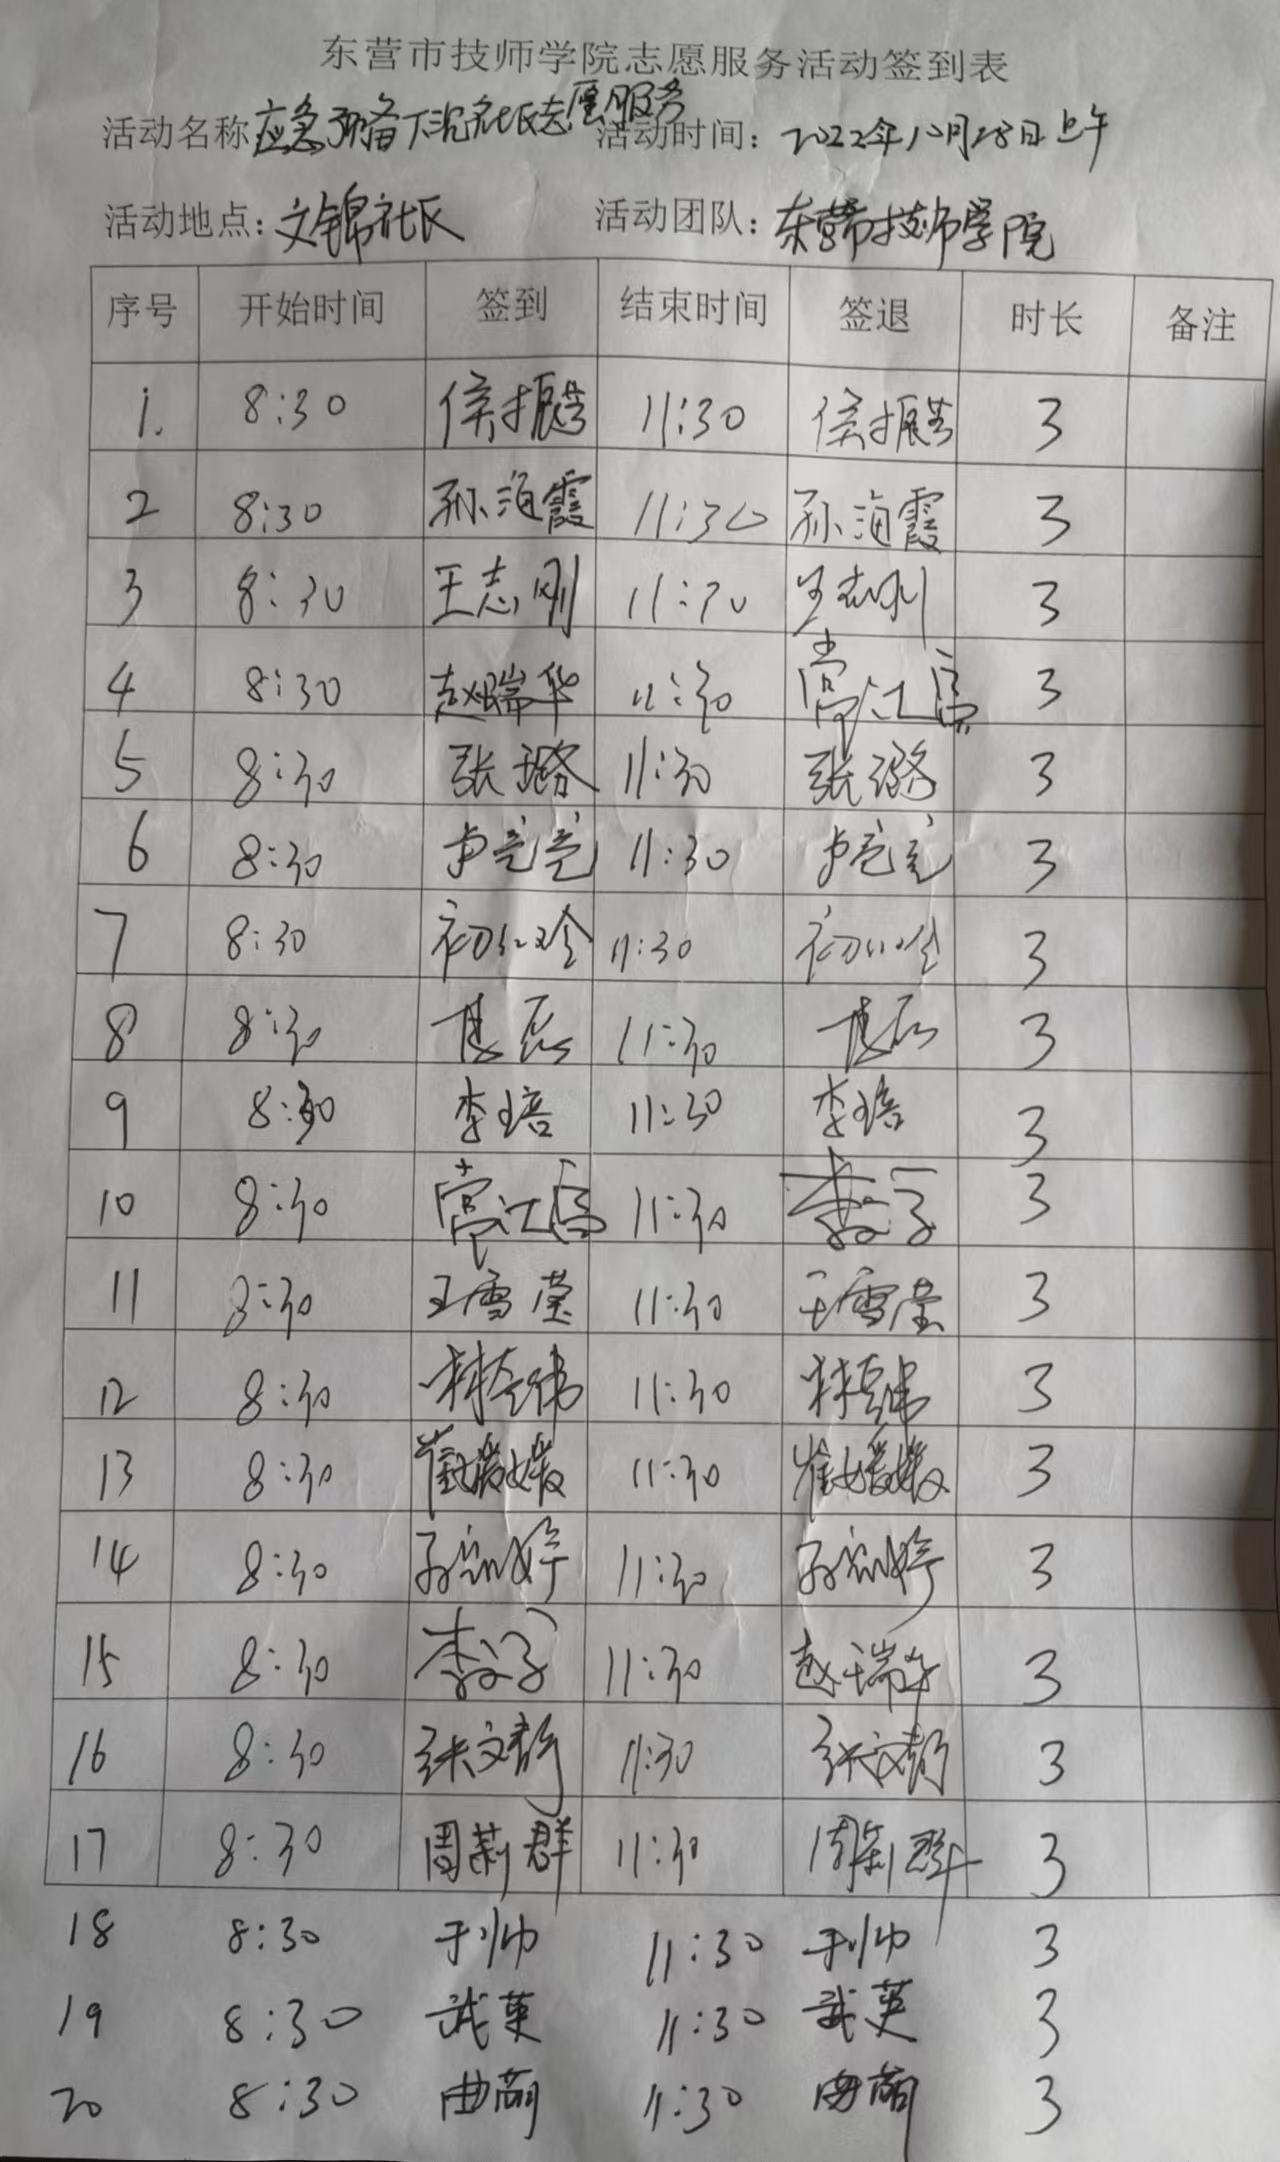 东营市技师学院志愿服务活动签到表
活动名称 应急预备下沉社区志愿服务 活动时间: 2022年10月28日上午
活动地点: 文锦社区 活动团队: 东营市技师学院
序号 开始时间 签到 结束时间 签退 时长 备注
1. 8:30 侯振 11:30 侯振 3
2 8:30 孙海霞 11:30 孙海霞 3
3 8:30 王志刚 11:30 王志刚 3
4 8:30 赵瑞华 11:30 常江 3
5 8:30 张璐 11:30 张璐 3
6 8:30 卢亮亮 11:30 卢亮亮 3
7 8:30 初红玲 11:30 初红玲 3
8 8:30 11:30 3
9 8:30 李培 11:30 李培 3
10 8:30 常江 11:30 李文子 3
11 8:30 王雪莹 11:30 王雪莹 3
12 8:30 林 伟 11:30 林 伟 3
13 8:30 崔媛媛 11:30 崔媛媛 3
14 8:30 孙 婷 11:30 孙 婷 3
15 8:30 李文子 11:30 赵瑞华 3
16 8:30 张文静 11:30 张文静 3
17 8:30 周莉群 11:30 周莉群 3
18 8:30 于帅 11:30 于帅 3
19 8:30 武英 11:30 武英 3
20 8:30 曲萌 11:30 曲萌 3